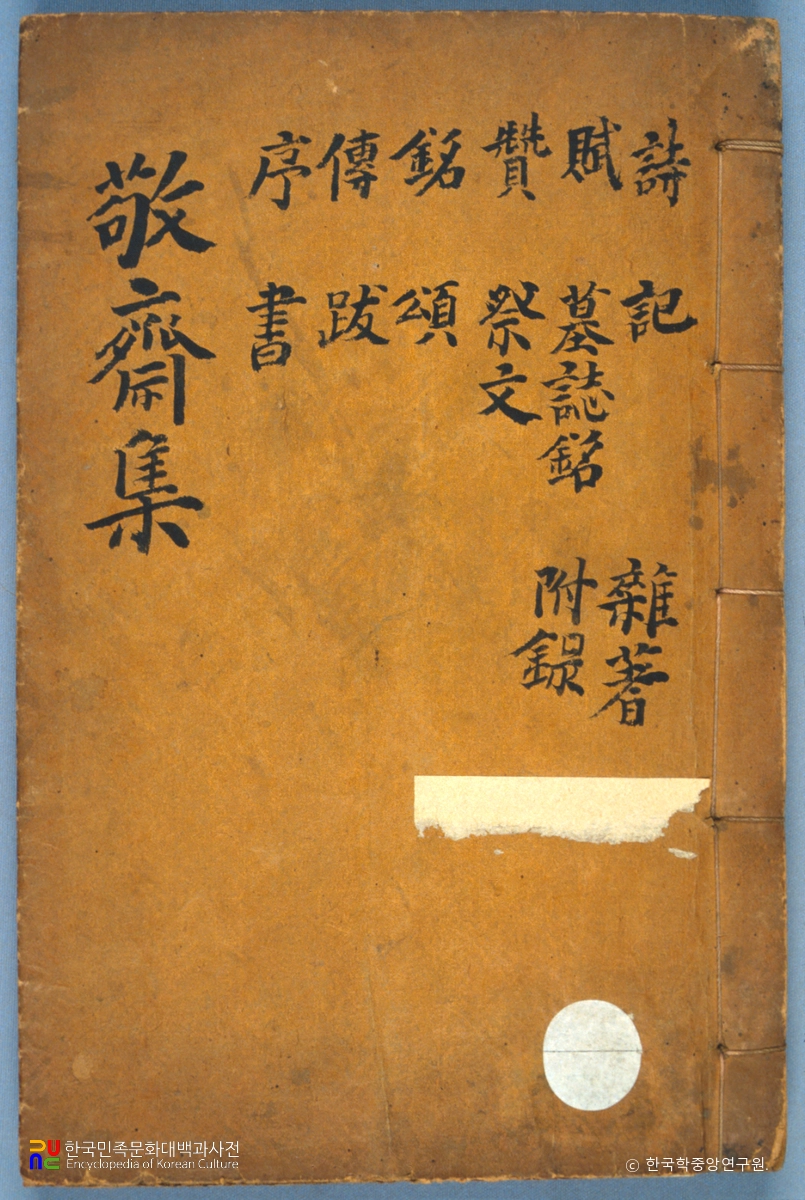 詩 記 雜著
賦 墓誌銘 附錄
贊 祭文
銘 頌
傳 跋
序 書
敬齋集
한국민족문화대백과사전
Encyclopedia of Korean Culture
© 한국학중앙연구원